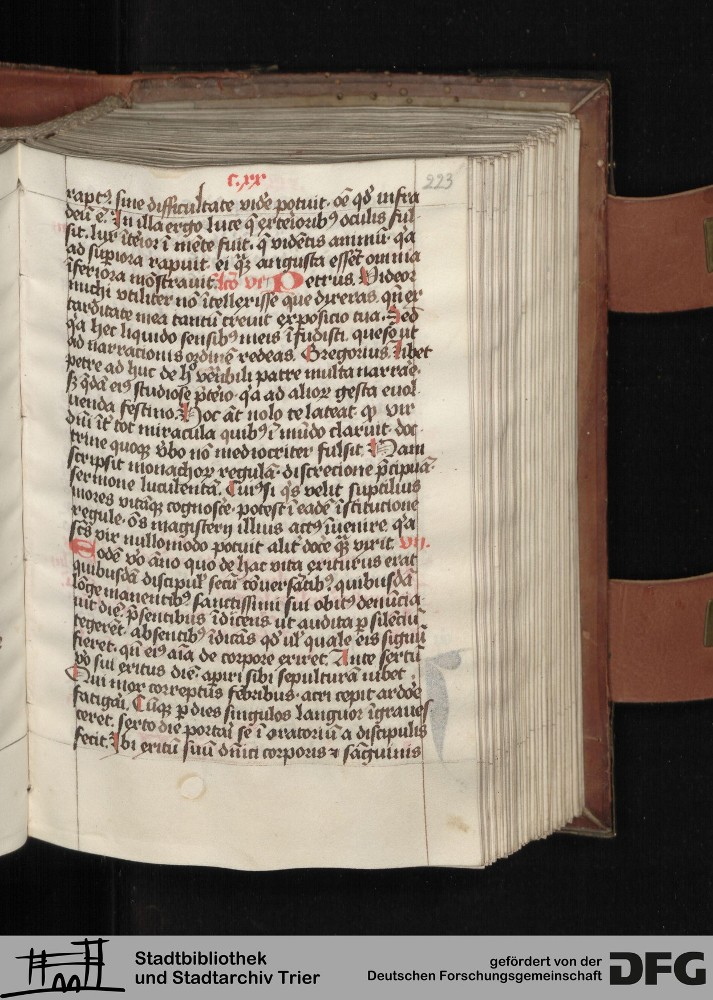 c.xx
223
rapt⁹. sine difficultate vide potuit. oē qd̄ infra
deū ē. In illa ergo luce q̄ exterioribꝫ oculis ful
sit. lux īterior ī mēte fuit. q̄ vidētis animū. qa
ad supiora rapuit. ei qꝫ angusta essēt omnia
īferiora mōstrauit. Petrus. Videor
michi vtiliter nō ītellexisse que dixeras. qn̄ ex
tarditate mea tantū creuit expositio tua. Sed
qa hec liquido sensibꝫ meis īfudisti. queso ut
ad narrationis ordinē redeas. Gregorius. libet
petre ad huc de hͦ ven̄bili patre multa narrare.
sꝫ qdā eiꝰ studiose p̄tēo. qa ad alioꝝ gesta euol
uenda festino. Hoc āt nolo te lateat. ꝙ vir
dūi īt tot miracula quibꝫ ī mūdo claruit. doc
trine quoqꝫ v̄bo nō mediocriter fulsit. Nam
scripsit monachoꝝ regulā. discrecione p̄cipuā.
sermone luculentā. Cuiꝰ si q̄s velit suptilius
mores vitāqꝫ cognosce. potest ī eadē īstitutione
regule. oēs magisterij illius actꝰ īuenire. qa
scs̄ vir nullomodo potuit alit̄ doce q̄ꝫ vixit. vii.
Eodē vo āno quo de hac vita exiturus erat
quibusdā discipul̄ secū cōuersātibꝫ. quibusdā
lōge manentibꝫ sanctissimi sui obitꝰ denūcia
uit diē. p̄sentibus īdicens ut audita p silētiū
tegerēt. absentibꝫ īdicās qd̄ ul̄ quale eis signū
fieret. qn̄ eiꝰ aīa de corpore exiret. Ante sextū
vo sui exitus diē. apiri sibi sepulturā iubet.
Qui mox correptus febribus. acri cepit ardōe
fatigāi. Cūqꝫ p dies singulos languor īgraues
ceret. sexto die portāi se ī oratoriū a discipulis
fecit. Ibi exitū suū dn̄ici corporis ⁊ sāguinis
Stadtbibliothek
und Stadtarchiv Trier
gefördert von der
Deutschen Forschungsgemeinschaft
DFG